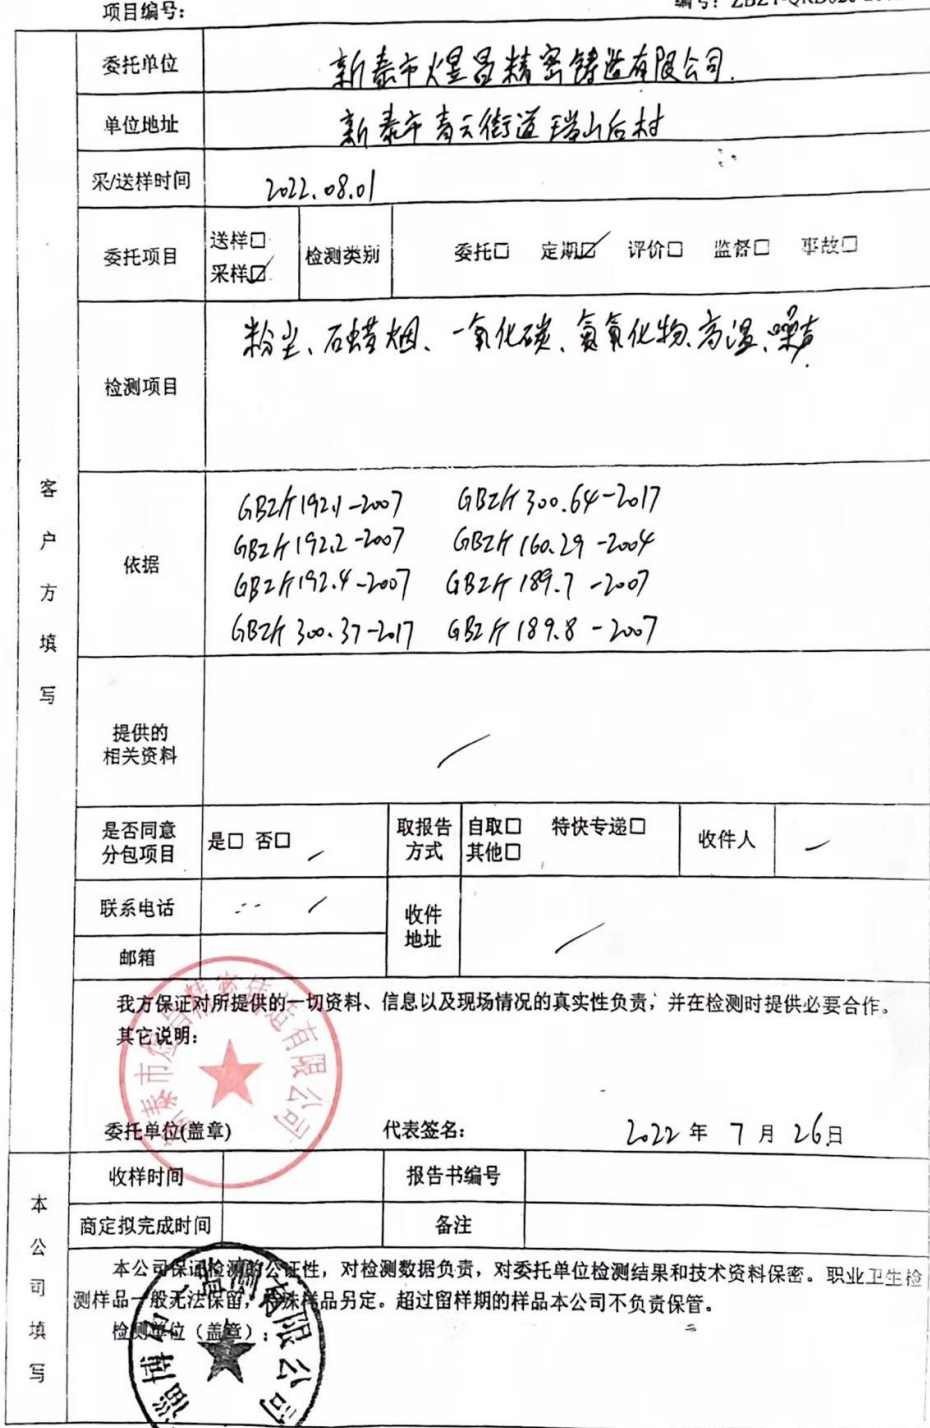 项目编号:
编号:
委托单位 新泰市煜昌精密铸造有限公司.
单位地址 新泰市青云街道瑞山后村
采/送样时间 2022.08.01
委托项目 送样□ 采样☑ 检测类别 委托□ 定期☑ 评价□ 监督□ 事故□
检测项目 粉尘、石蜡烟、一氧化碳、氮氧化物、高温、噪声
客户方填写
依据
GBZ/T 192.1-2007 GBZ/T 300.64-2017
GBZ/T 192.2-2007 GBZ/T 160.29-2004
GBZ/T 192.4-2007 GBZ/T 189.7-2007
GBZ/T 300.37-2017 GBZ/T 189.8-2007
提供的
相关资料 /
是否同意
分包项目 是□ 否□ / 取报告
方式 自取□ 特快专递□
其他□ 收件人 /
联系电话 / 收件
地址 /
邮箱
我方保证对所提供的一切资料、信息以及现场情况的真实性负责,并在检测时提供必要合作。
其它说明:
新泰市煜昌精密铸造有限公司
委托单位(盖章) 代表签名: 2022 年 7 月 26 日
本公司填写
收样时间 报告书编号
商定拟完成时间 备注
本公司保证检测的公证性,对检测数据负责,对委托单位检测结果和技术资料保密。职业卫生检
测样品一般无法保留,特殊样品另定。超过留样期的样品本公司不负责保管。
检测单位(盖章):
淄博 检测有限公司